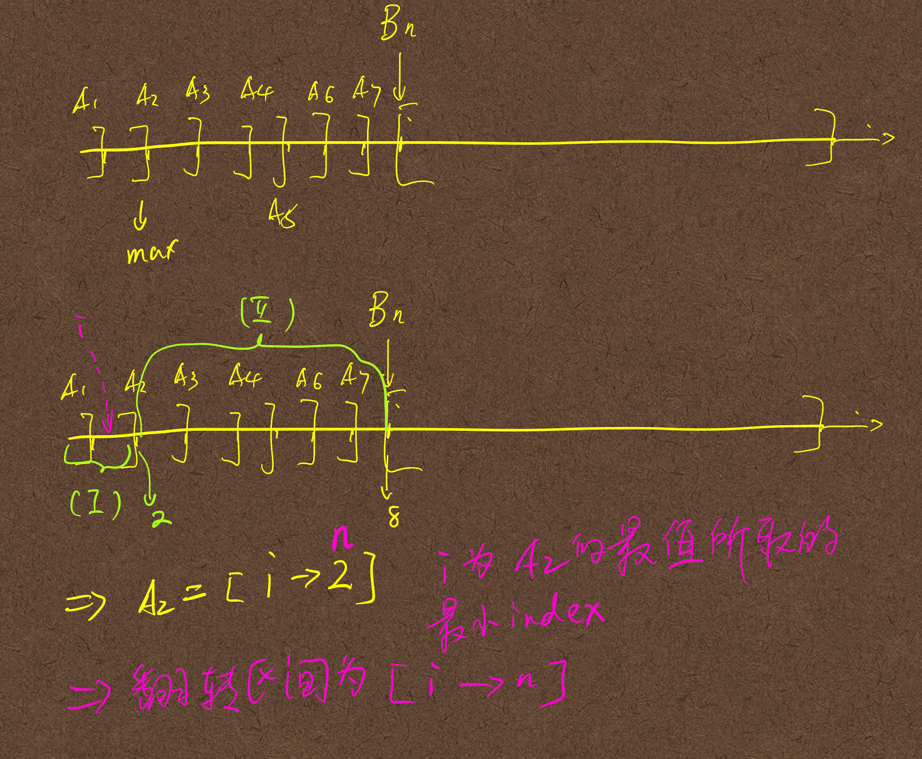 Bn
A1 A2 A3 A4 A6 A7
i
A5
max
(II)
i
Bn
A1 A2 A3 A4 A6 A7
i
(I) 2 8
n
⇒ A2 = [i → 2]
i为A2的最值所取的
最小index
⇒ 翻转区间为 [i → n]